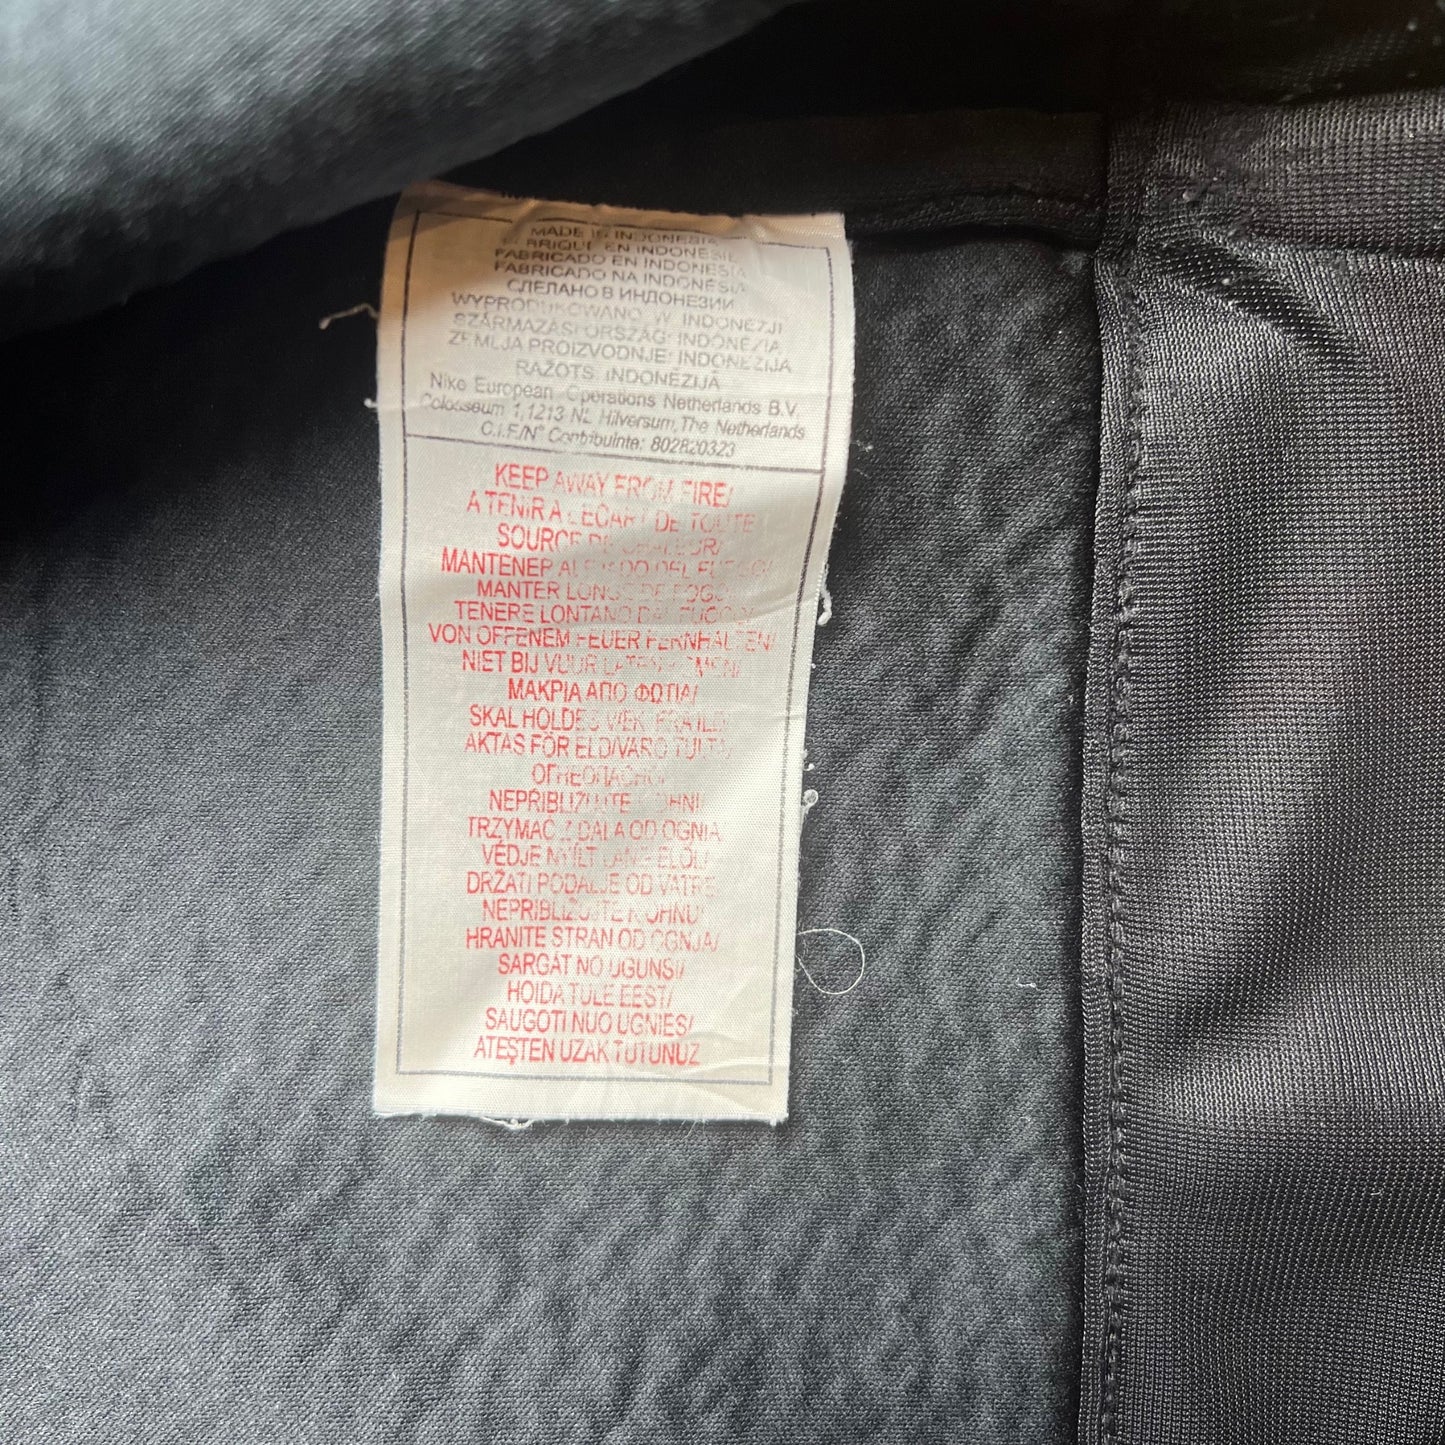 MADE IN INDONESIA
FABRIQUÉ EN INDONÉSIE
FABRICADO EN INDONESIA
FABRICADO NA INDONÉSIA
СДЕЛАНО В ИНДОНЕЗИИ
WYPRODUKOWANO W INDONEZJI
SZÁRMAZÁSI ORSZÁG: INDONÉZIA
ZEMLJA PROIZVODNJE: INDONEZIJA
RAŽOTS INDONĒZIJĀ
Nike European Operations Netherlands B.V.
Colosseum 1, 1213 NL Hilversum, The Netherlands
C.I.F./N° Contribuinte: 802820323
KEEP AWAY FROM FIRE/
A TENIR A L'ECART DE TOUTE
SOURCE DE CHALEUR/
MANTENER ALEJADO DEL FUEGO/
MANTER LONGE DE FOGO/
TENERE LONTANO DAL FUOCO/
VON OFFENEM FEUER FERNHALTEN/
NIET BIJ VUUR LATEN KOMEN/
ΜΑΚΡΙΑ ΑΠΟ ΦΩΤΙΑ/
SKAL HOLDES VÆK FRA ILD/
AKTAS FÖR ELD/VARO TULTA/
ОГНЕОПАСНО/
NEPŘIBLIŽUJTE K OHNI/
TRZYMAĆ Z DALA OD OGNIA/
VÉDJE NYÍLT LÁNG ELŐL/
DRŽATI PODALJE OD VATRE/
NEPRIBLIŽUJTE K OHŇU/
HRANITE STRAN OD OGNJA/
SARGĀT NO UGUNS/
HOIDA TULE EEST/
SAUGOTI NUO UGNIES/
ATEŞTEN UZAK TUTUNUZ